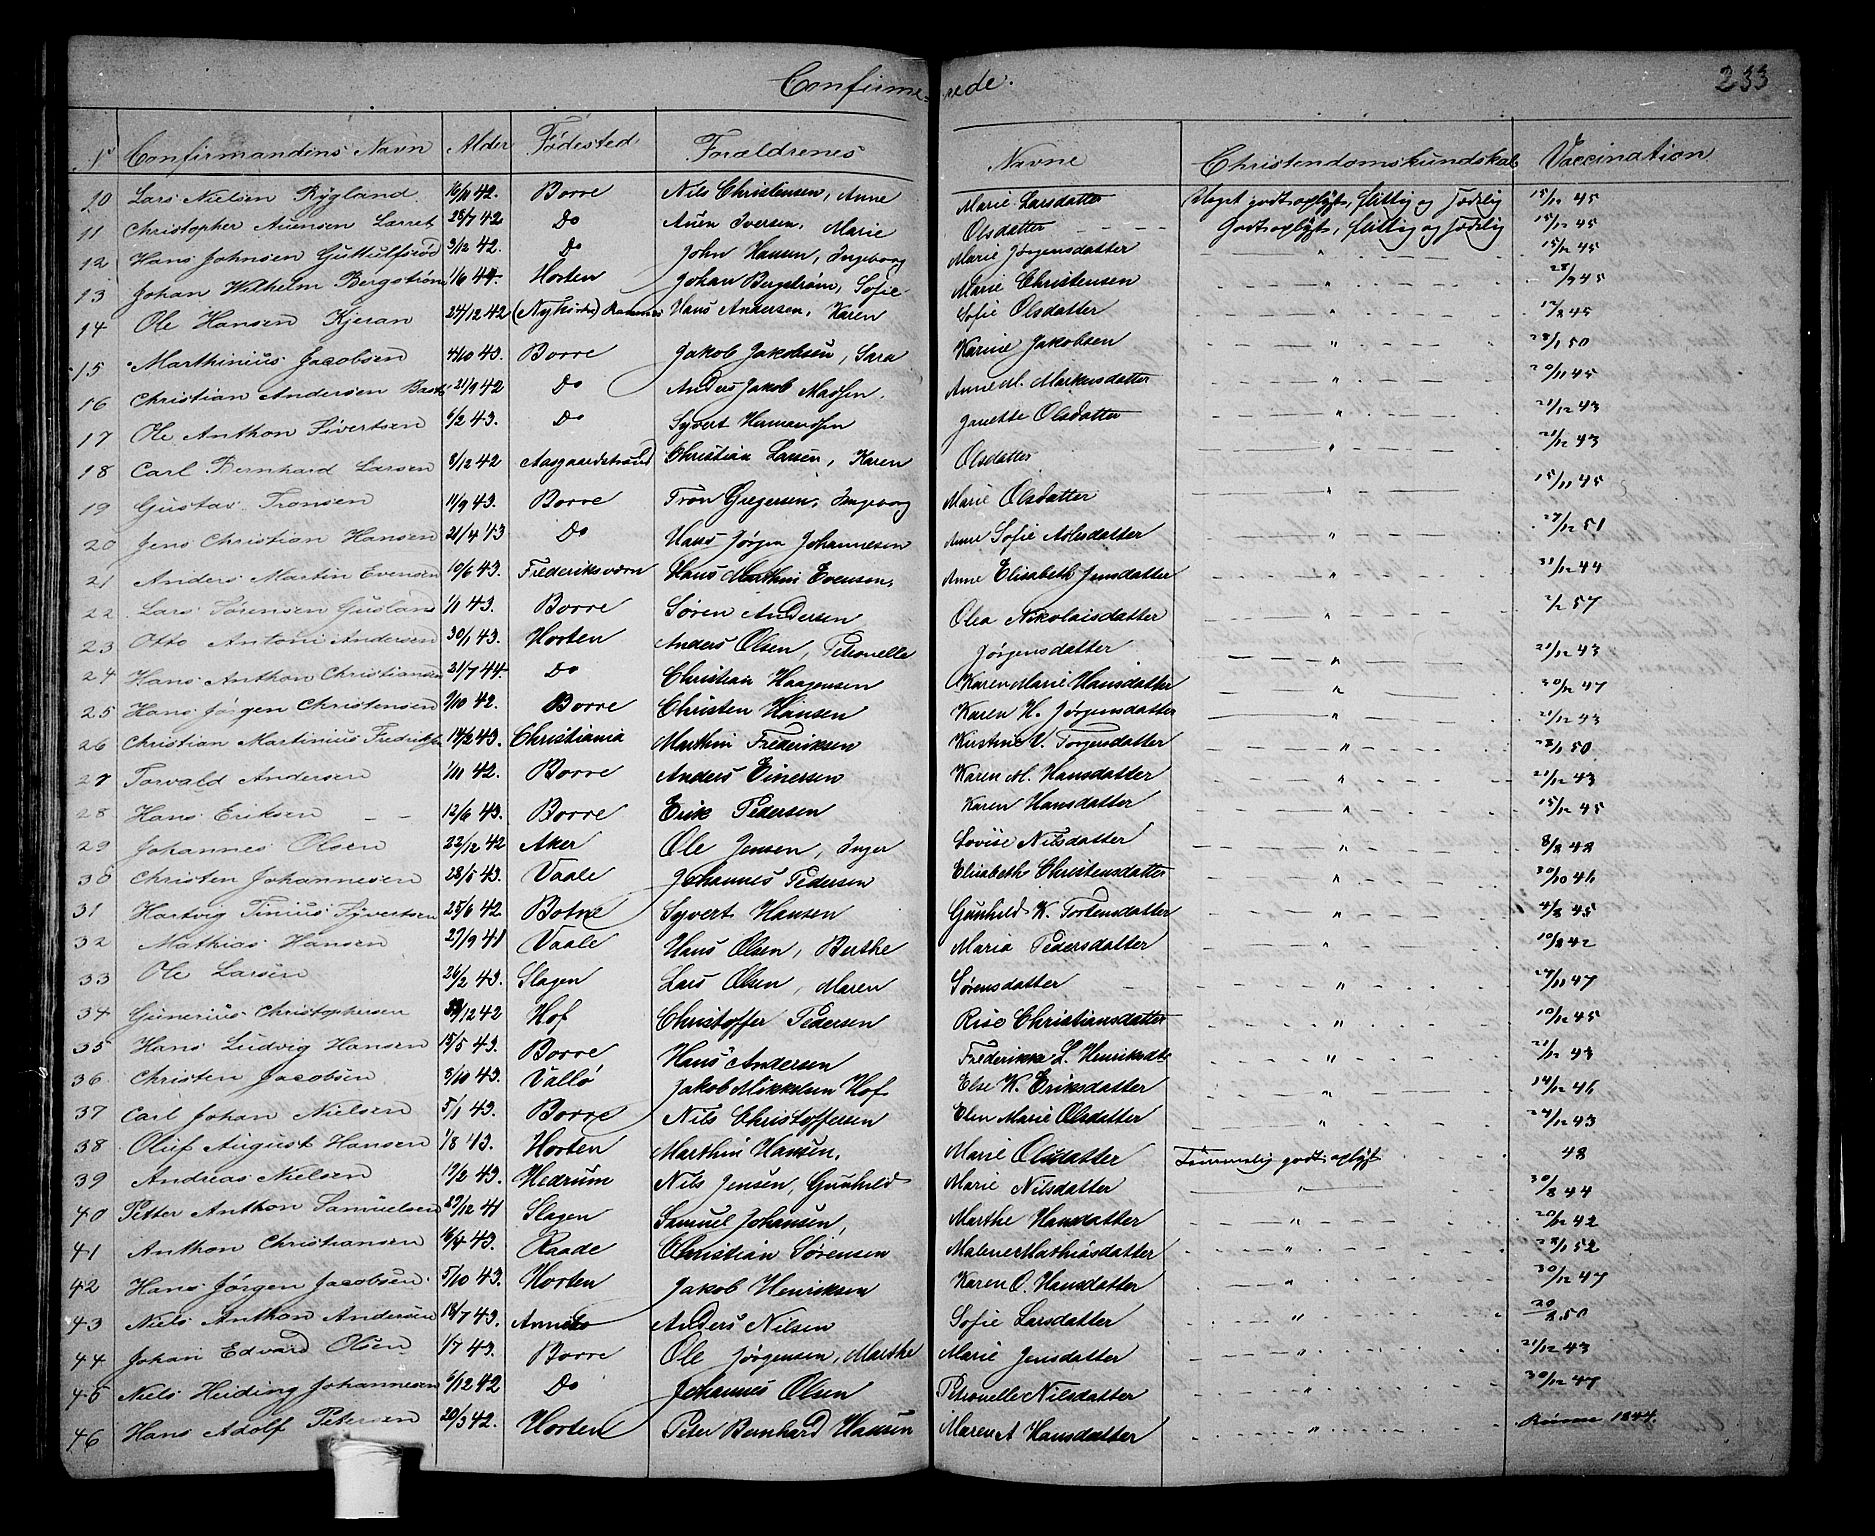 Confirme=rede. 233
N Confirmandens Navn Alder Fødested Forældrenes Navne Christendomskundskab Vaccination
10 Lars Nielsen Rygland 42. Borre Nils Christensen, Anne Marie Larsdatter Meget godt oplyst, flittig og sædelig 15/12 45
11 Christopher Auensen 28/7 42 Do Auen Iversen, Marie Olsdatter Godt oplyst, flittig og sædelig 15/12 45
12 Hans Johnsen 3/12 42. Do John Hansen, Ingeborg Marie Jørgensdatter " 15/12 45
13 Johan Wilhelm Bergstrøm 1/6 44. Horten Johan Bergstrøm, Sofie Marie Christensen " 45
14 Ole Hansen Kjeran 24/12 42 (Nykirke) Ramnes Hans Andersen, Karen Sofie Olsdatter " 45
15 Marthinius Jacobsen 4/10 43. Borre Jakob Jakobsen, Sara Karine Jakobsen " 28/1 50
16 Christian Andersen 21/9 42 Do Anders Jakob Massen. Anne M. Markusdatter " 20/11 45
17 Ole Anthon Sivertsen 6/2 43. Do Syvert Hansen Janette Olsdatter " 21/12 43
18 Carl Bernhard Larsen 8/12 42 Aasgaardstrand Christian Larsen, Karen Olsdatter " 21/12 43
19 Gustav Tronsen 11/9 43. Borre Tron Gregersen, Ingeborg Marie Olsdatter " 15/11 45
20 Jens Christian Hansen 21/4 43 Do Hans Jørgen Johannesen Anne Sofie Aslesdatter " 27/12 51
21 Anders Martin Evensen 10/6 43. Frederiksværn Hans Mathis Evensen, Anne Elisabeth Jensdatter " 31/12 44
22 Lars Sørensen 1/11 43. Borre Søren Andersen Olea Nikolaisdatter " 57
23 Otto Antoni Andersen 30/1 43. Horten Anders Olsen, Petronelle Jørgensdatter " 21/12 43
24 Hans Anthon Christiansen 21/7 44. Do Christian Haagensen Karen Marie Hansdatter " 30/12 47
25 Hans Jørgen Christensen 9/10 42. Borre Christen Hansen Karen H. Jørgensdatter " 21/12 43
26 Christian Martinius Fredriksen 14/2 43. Christiania Marthin Frederiksen Kirstine V. Torgersdatter " 28/1 50
27 Torvald Andersen 1/11 42. Borre Anders Einersen Karen M. Hansdatter " 21/12 43
28 Hans Eriksen 12/6 43. Borre Erik Pedersen Karen Hansdatter " 15/12 45
29 Johannes Olsen 22/12 42 Aker Ole Jensen, Inger Lovise Nilsdatter " 8/2 42
30 Christen Johannesen 28/5 43. Vaale Johannes Pedersen Elisabeth Christensdatter " 30/10 46
31 Hartvig Tinius Syvertsen 25/6 42 Botne Syvert Hansen Gunhild K. Tostensdatter " 4/8 45
32 Mathias Hansen 27/9 41 Vaale Hans Olsen, Berthe Maria Pedersdatter. " 10/2 42
33 Ole Larsen 26/2 43. Slagen Lars Olsen, Maren Sørensdatter " 27/11 47
34 Gunerius Christophersen 12 42 Hof Christoffer Pedersen Rise Christiansdatter " 10/12 45
35 Hans Ludvig Hansen 15/5 43. Borre Hans Andersen Frederikka L. Henriksdtr " 21/12 43
36 Christen Jacobsen 3/10 43. Vallø Jakob Mikkelsen Hof Else K. Eriksdatter " 14/12 46
37 Carl Johan Nielsen 5/1 43. Borre Nils Christoffersen Elen Marie Olsdatter " 21/12 43
38 Oluf August Hansen 1/8 43. Horten Marthin Hansen, Marie Olsdatter Temmelig godt oplyst 48
39 Andreas Nielsen 17/2 43. Hedrum Nils Jensen, Gunhild Marie Nilsdatter " 30/8 44
40 Petter Anthon Samuelsen 29/12 41 Slagen Samuel Johansen, Marthe Hansdatter " 20/12 42
41 Anthon Christiansen 6/4 43. Raade Christian Sørensen Malene Mathiasdatter " 28/1 52
42 Hans Jørgen Jacobsen 5/10 43. Horten Jakob Henriksen Karen O. Hansdatter " 30/12 47
43 Niels Anthon Andersen 18/7 43. Anders Nilsen Sofie Larsdatter " 20/2 50
44 Johan Edvard Olsen 1/7 43. Borre Ole Jørgensen, Marthe Marie Jensdatter " 21/12 43
45 Niels Heiding Johannesen 6/12 42 Do Johannes Olsen Petronelle Nilsdatter " 30/12 47
46 Hans Adolf Petersen 20/3 42. Horten Peter Bernhard Hansen Maren A Hansdatter " 1844.